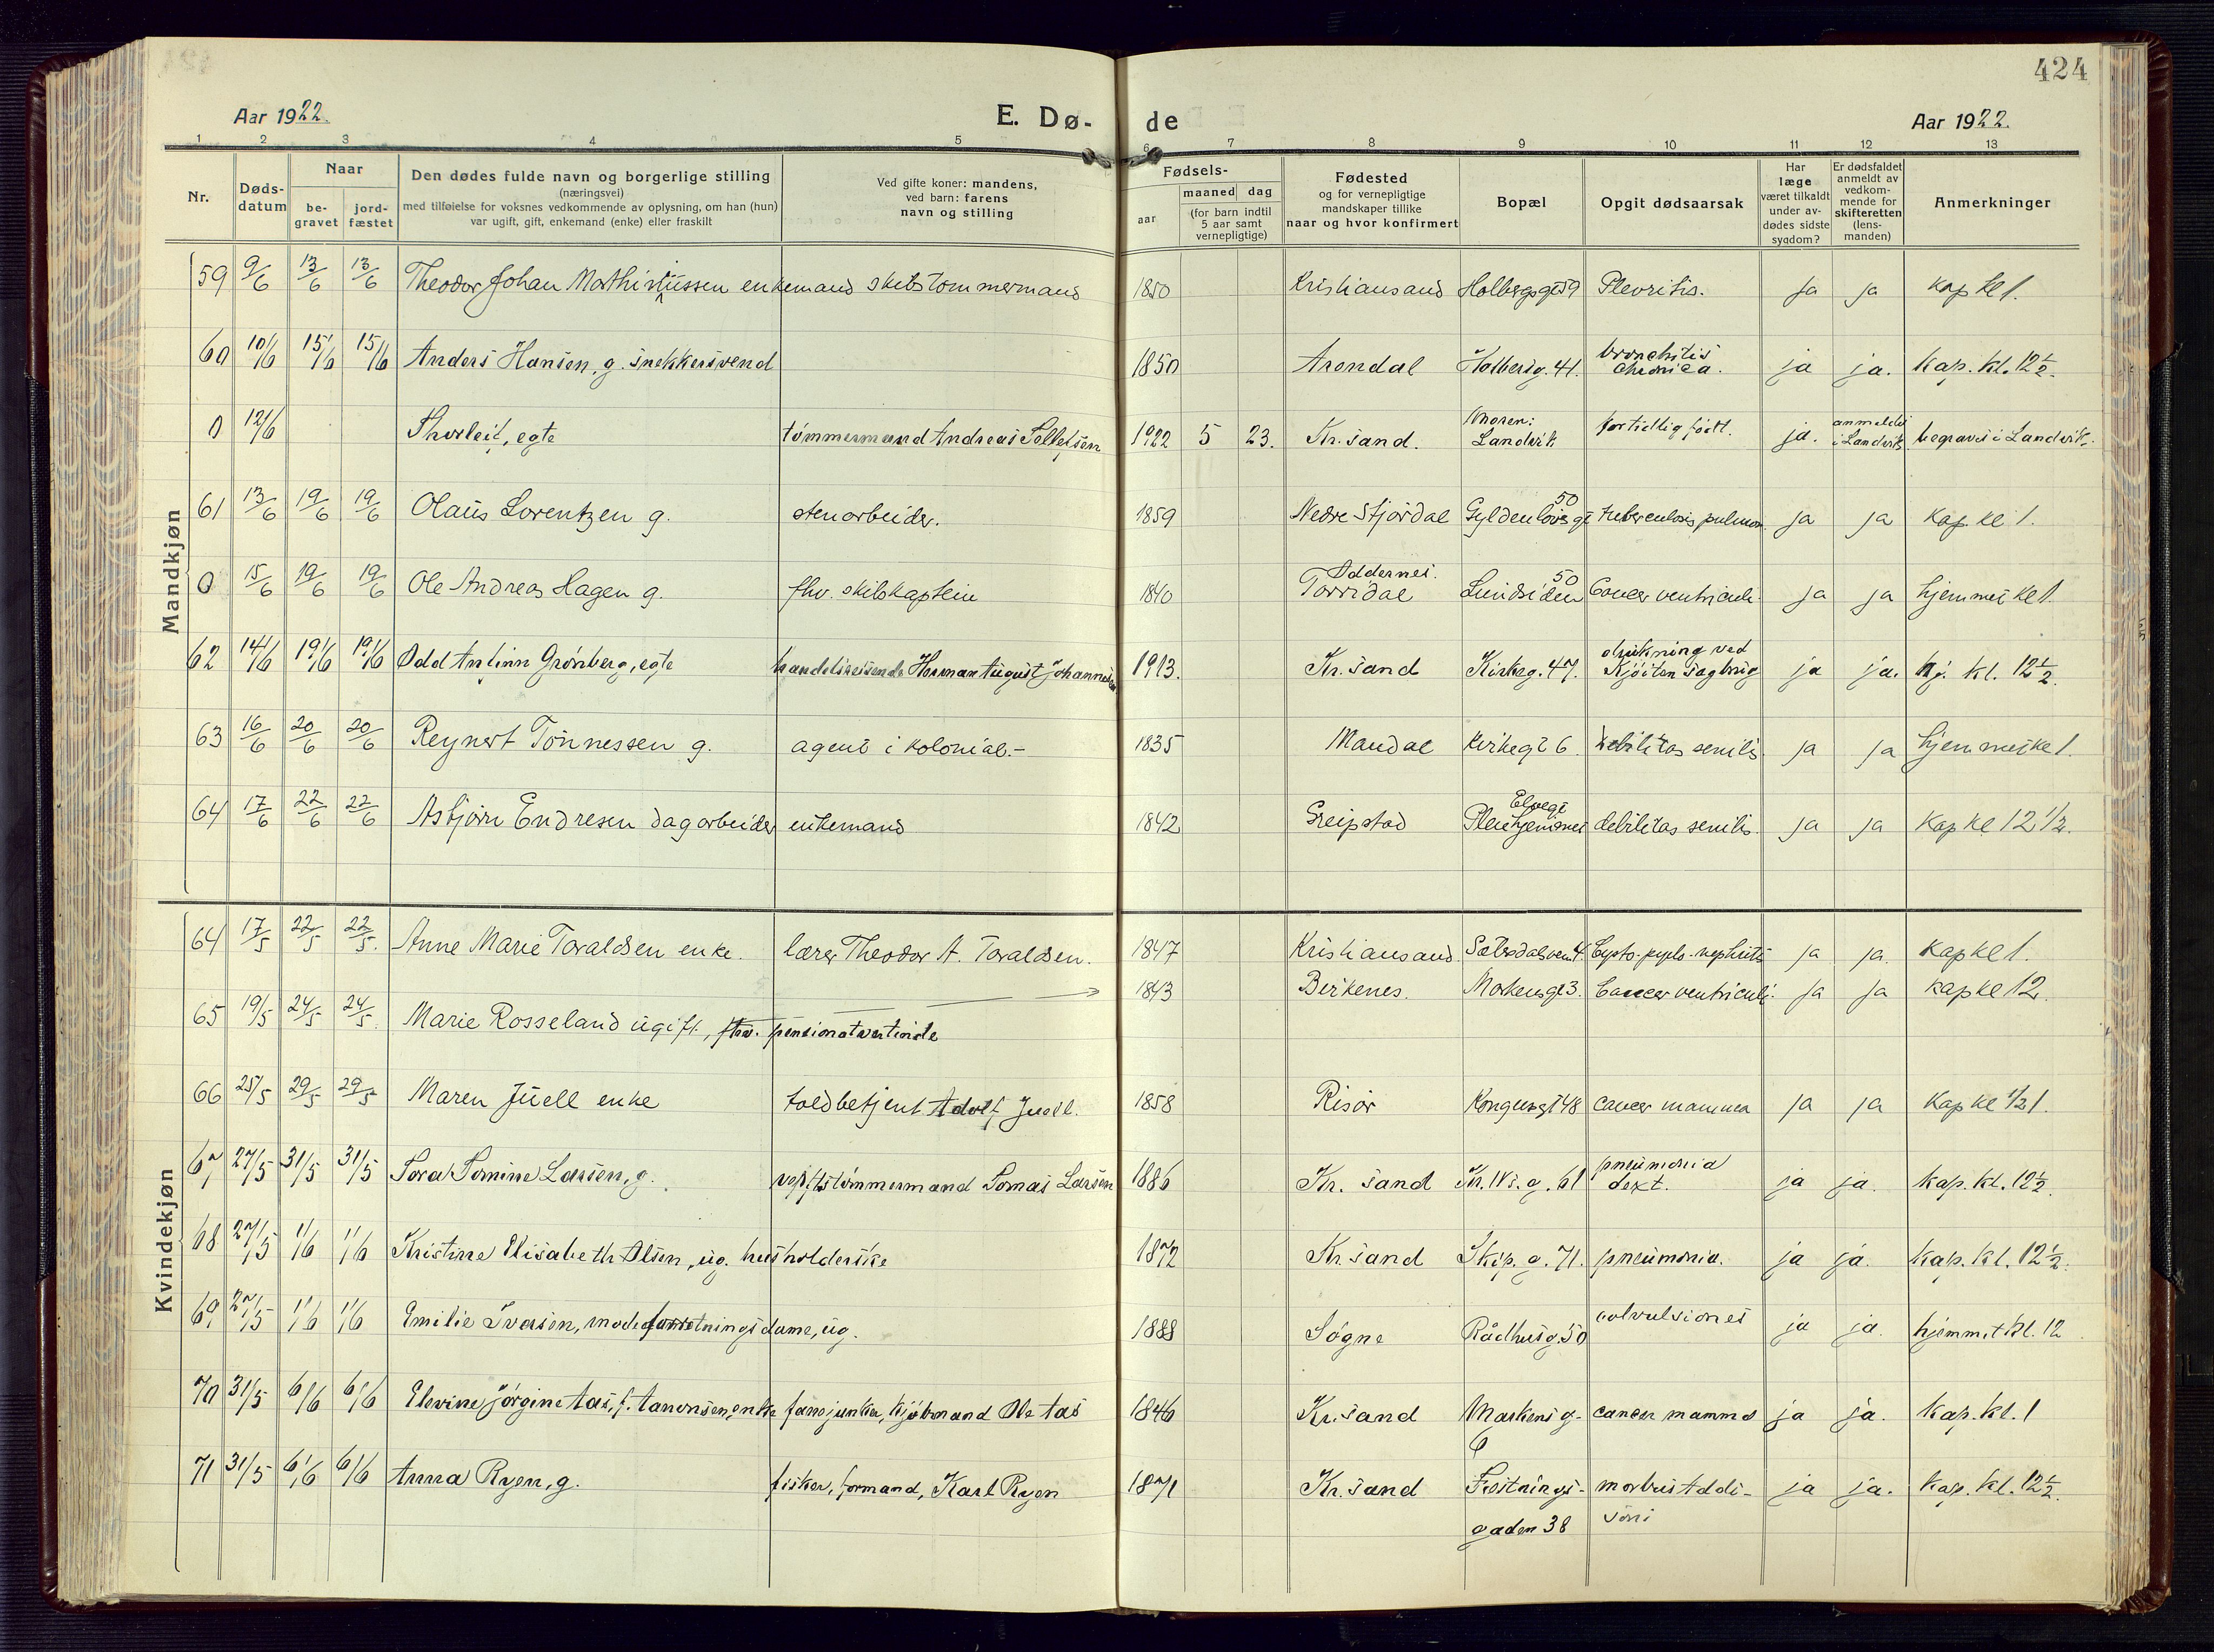 424
Aar 1922. E. Dø- de Aar 1922.
1 2 3 4 5 6 7 8 9 10 11 12 13
Nr.
Døds-
datum
Naar
be-
gravet
jord-
fæstet
Den dødes fulde navn og borgerlige stilling
(næringsvei)
med tilføielse for voksnes vedkommende av oplysning, om han (hun)
var ugift, gift, enkemand (enke) eller fraskilt
Ved gifte koner: mandens,
ved barn: farens
navn og stilling
Fødsels-
aar
maaned dag
(for barn indtil
5 aar samt
vernepligtige)
Fødested
og for vernepligtige
mandskaper tillike
naar og hvor konfirmert
Bopæl
Opgit dødsaarsak
Har
læge
været tilkaldt
under av-
dødes sidste
sygdom?
Er dødsfaldet
anmeldt av
vedkom-
mende for
skifteretten
(lens-
manden)
Anmerkninger
Mandkjøn
59 9/6 13/6 13/6 Theodor Johan Mathiussen enkemand skibstømmermand 1850 Kristiansand Holbergsgt 59 Plevritis. ja ja kap kl 1.
60 10/6 15/6 15/6 Anders Hansen, g. snekkersvend 1850 Arendal Holbergg. 41. bronchitis
chronica. ja ja. Kap. kl. 12 1/2.
0 12/6 Thorleif, egte tømmermand Andreas Sellefsen 1922 5 23. Kr.sand. Moren:
Landvik fortidlig født. ja. anmeldt
i Landvik begraves i Landvik.
61 13/6 19/6 19/6 Olaus Lorentzen g. stenarbeider. 1859 Nedre Stjørdal Gyldenløvesgt 50 tuberculosis pulmon ja ja kap. kl 1.
0 15/6 19/6 19/6 Ole Andreas Hagen g. fhv. skibskaptein 1840 Oddernes.
Torridal Lundsiden 50 Cancer ventriculi. ja ja hjemmei kl 1.
62 14/6 19/6 19/6 Odd Anfinn Grønberg, egte handelsreisende Herman August Johannesen 1913. Kr.sand Kirkeg. 47. drukning ved
Kjøiten sagbrug ja ja. hj. kl. 12 1/2.
63 16/6 20/6 20/6 Reynert Tønnessen g. agent i kolonial.- 1835 Mandal Kirkegt 6 debilitas senilis. ja ja hjemmei kl 1.
64 17/6 22/6 22/6 Asbjørn Endresen dagarbeider enkemand 1842 Greipstad Elvegt
Pleiehjemmet debilitas senilis. ja ja Kap kl 12 1/2.
Kvindekjøn
64 17/5 22/5 22/5. Anne Marie Toraldsen enke. lærer Theodor A. Toraldsen. 1847 Kristiansand. Sætersdalsvei 4. Cysto-pyelo-nephritis ja ja. kap kl 1.
65 19/5 24/5 24/5. Marie Rosseland ugift, fhv. pensionatvertinde 1843 Birkenes. Markensgt 3. Cancer ventriculi. ja ja kap kl 12.
66 25/5 29/5 29/5 Maren Juell enke toldbetjent Adolf Juell. 1858 Risør Kongensgt 48 cancer mamma ja ja Kap kl 1/2 1.
67 27/5 31/5 31/5 Tora Tomine Larsen, g. verftstømmermand Tomas Larsen 1886 Kr. sand Kr. IVs. g. 61 pneumonia
dext. ja ja. kap. kl. 12 1/2.
68 27/5 1/6 1/6 Kristine Elisabeth Olsen, ug. husholderske 1872 Kr.sand Skip. g. 71. pneumonia. ja ja. kap. kl. 12 1/2.
69 27/5 1/6 1/6 Emilie Iversen, modeforretningsdame, ug. 1888 Søgne Rådhusg. 50 colvulsiones ja ja. hjemmet kl. 12.
70 31/5 6/6 6/6 Elevine Jørgine Aas, f. Aanonsen, enke fanejunker, kjøbmand Ole Aas 1846 Kr.sand Markensg.
6 cancer mamma ja ja. Kap. kl. 1
71 31/5 6/6 6/6 Anna Ryen, g. fisker, formand, Karl Ryen 1871 Kr.sand Festnings-
gaden 38 morbus Addi-
soni ja ja. Kap. kl. 12 1/2.